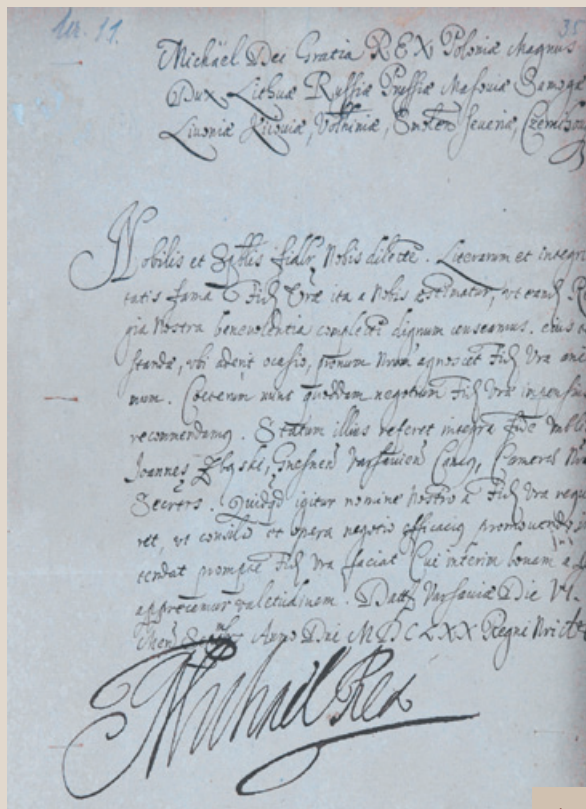 Nr. 11. 35
Michäel Dei Gratia REX Poloniæ Magnus
Dux Lithuæ Russiæ Prussiæ Masoviæ Samogæ
Livoniæ Kioviæ, Volhiniæ, Smolen Severiæ, Czernihov
Nobilis et fidlr Nobis dilecte. Literarum et integri
tatis fama Fid Vræ ita a Nobis æstimatur, ut eam R
gia Nostra benevolentia complecti dignum censeamus.
standæ, ubi aderit ocasio, pronum Nrum agnoscet Fid Vra ani
mum. Cæterum nunc quoddam negotium Fid Vræ impensius
recommendamus. Statum illius referet integra fide
Joannes Gnesnen Varsavien Canus, Cameræ
Secrets. Quidqd igitur nomine Nostro a Fid Vra requi
ret, ut consilio et opera negotio efficacius promovendo
tendat prompte Fid Vra faciat Cui interim bonam a
apprecamur valetudinem. Datt Varsaviæ Die VI
Anno Dni MDCLXX Regni Nri
Michael Rex